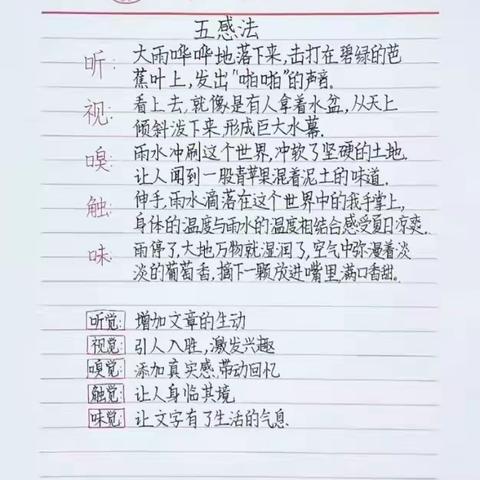 五感法
听: 大雨哗哗地落下来,击打在碧绿的芭
蕉叶上,发出"啪啪"的声音.
视: 看上去,就像是有人拿着水盆,从天上
倾斜泼下来,形成巨大水幕.
嗅: 雨水冲刷这个世界,冲软了坚硬的土地.
让人闻到一股青苹果混着泥土的味道.
触: 伸手,雨水滴落在这个世界中的我手掌上,
身体的温度与雨水的温度相结合感受夏日凉爽.
味: 雨停了,大地万物就湿润了,空气中弥漫着淡
淡的葡萄香,摘下一颗放进嘴里,满口香甜.
听觉: 增加文章的生动
视觉: 引人入胜,激发兴趣
嗅觉: 添加真实感,带动回忆
触觉: 让人身临其境
味觉: 让文字有了生活的气息.